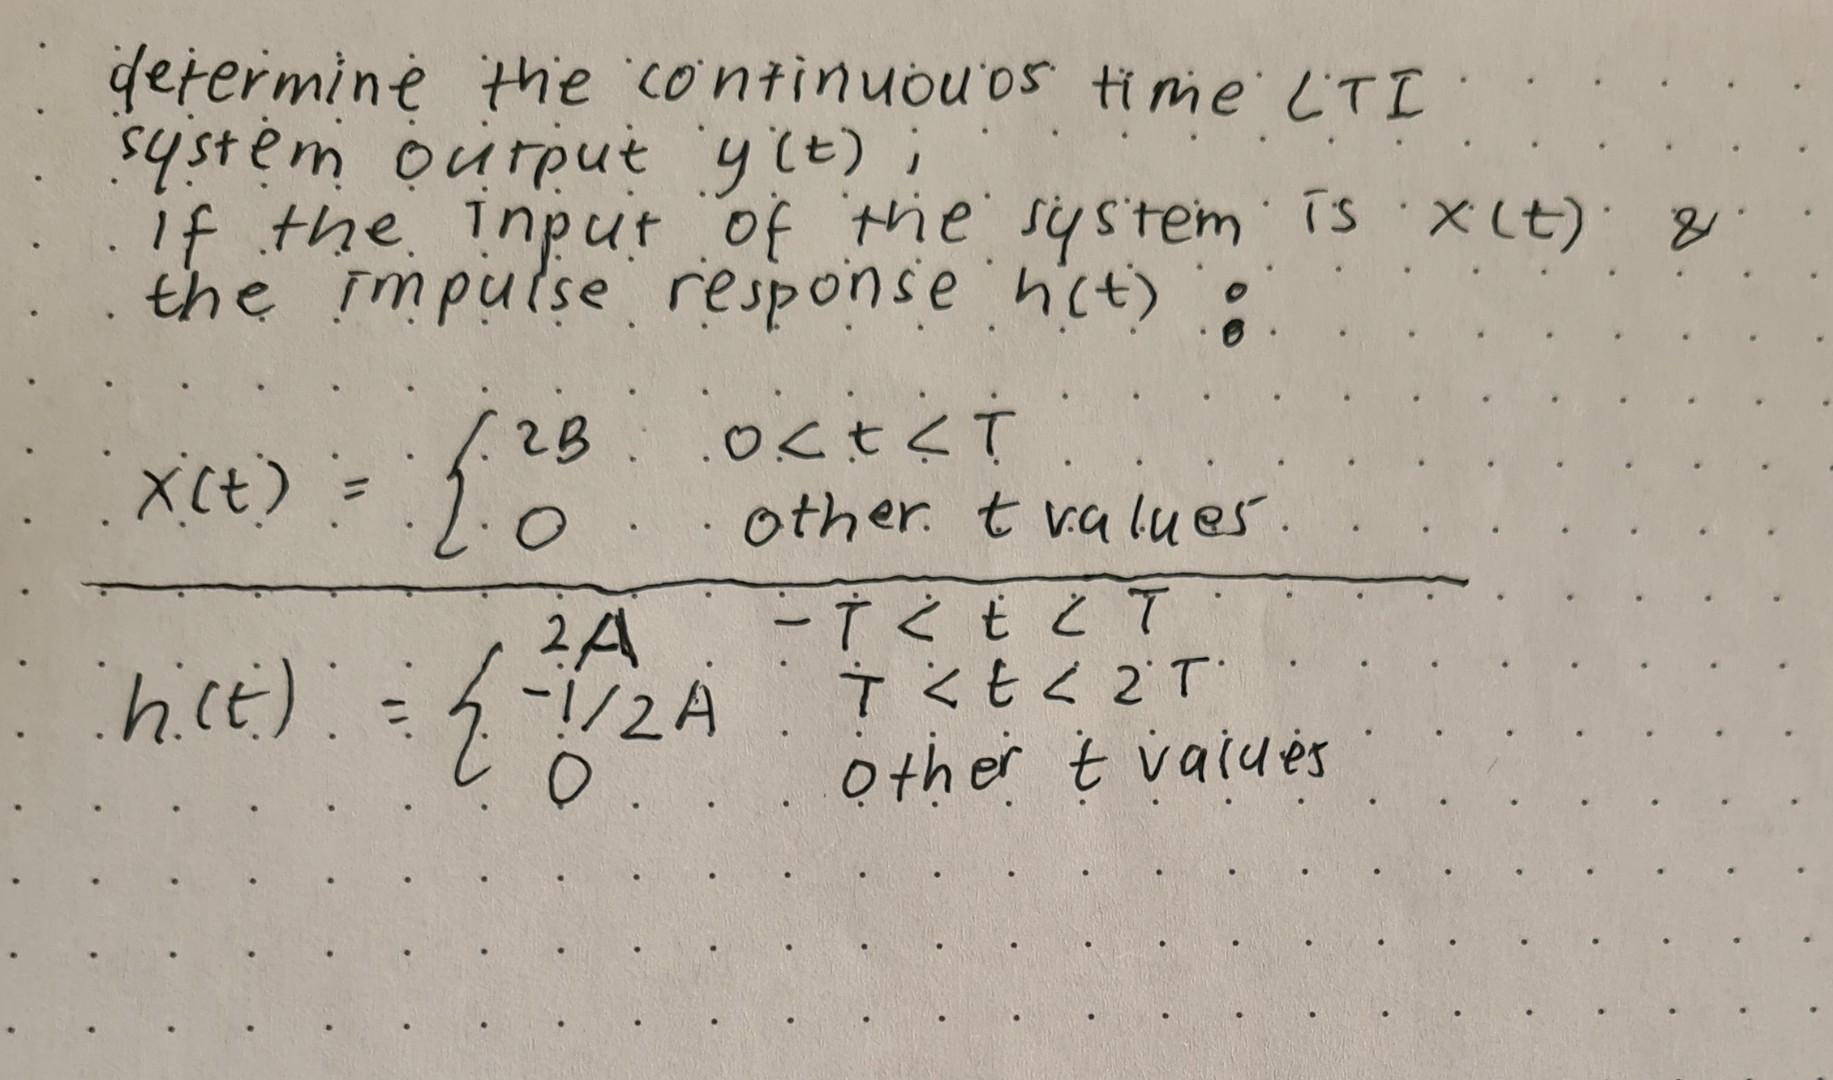 determine the continuouos time LTI
system output y(t) ;
if the input of the system is x(t) &
the impulse response h(t) :
x(t) = { 2B 0 < t < T
0 other t values
2A -T < t < T
h(t) = { -1/2A T < t < 2T
0 other t values